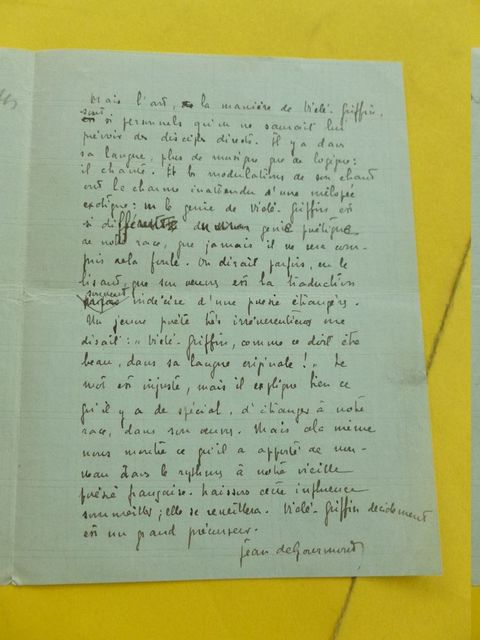 Mais l'art, la manière de Vielé-Griffin,
sont si personnels qu'on ne saurait lui
prévoir des disciples directs. Il y a dans
sa langue, plus de musique que de logique :
il chante. Et les modulations de son chant
ont le charme inattendu d'une mélopée
exotique : le génie de Vielé-Griffin est
si différent du génie poétique
de notre race, que jamais il ne sera com-
pris de la foule. On dirait parfois, en le
lisant, que son œuvre est la traduction
souvent indécise d'une poésie étrangère.
Un jeune poète très irrévérencieux me
disait : „ Vielé-Griffin, comme ce doit être
beau, dans sa langue originale ! „ Le
mot est injuste, mais il explique bien ce
qu'il y a de spécial, d'étranger à notre
race, dans son œuvre. Mais cela même
nous montre ce qu'il a apporté de nou-
veau dans le rythme à notre vieille
poésie française. Laissons cette influence
sommeiller ; elle se réveillera. Vielé-Griffin décidément
est un grand précurseur.
Jean de Gourmont